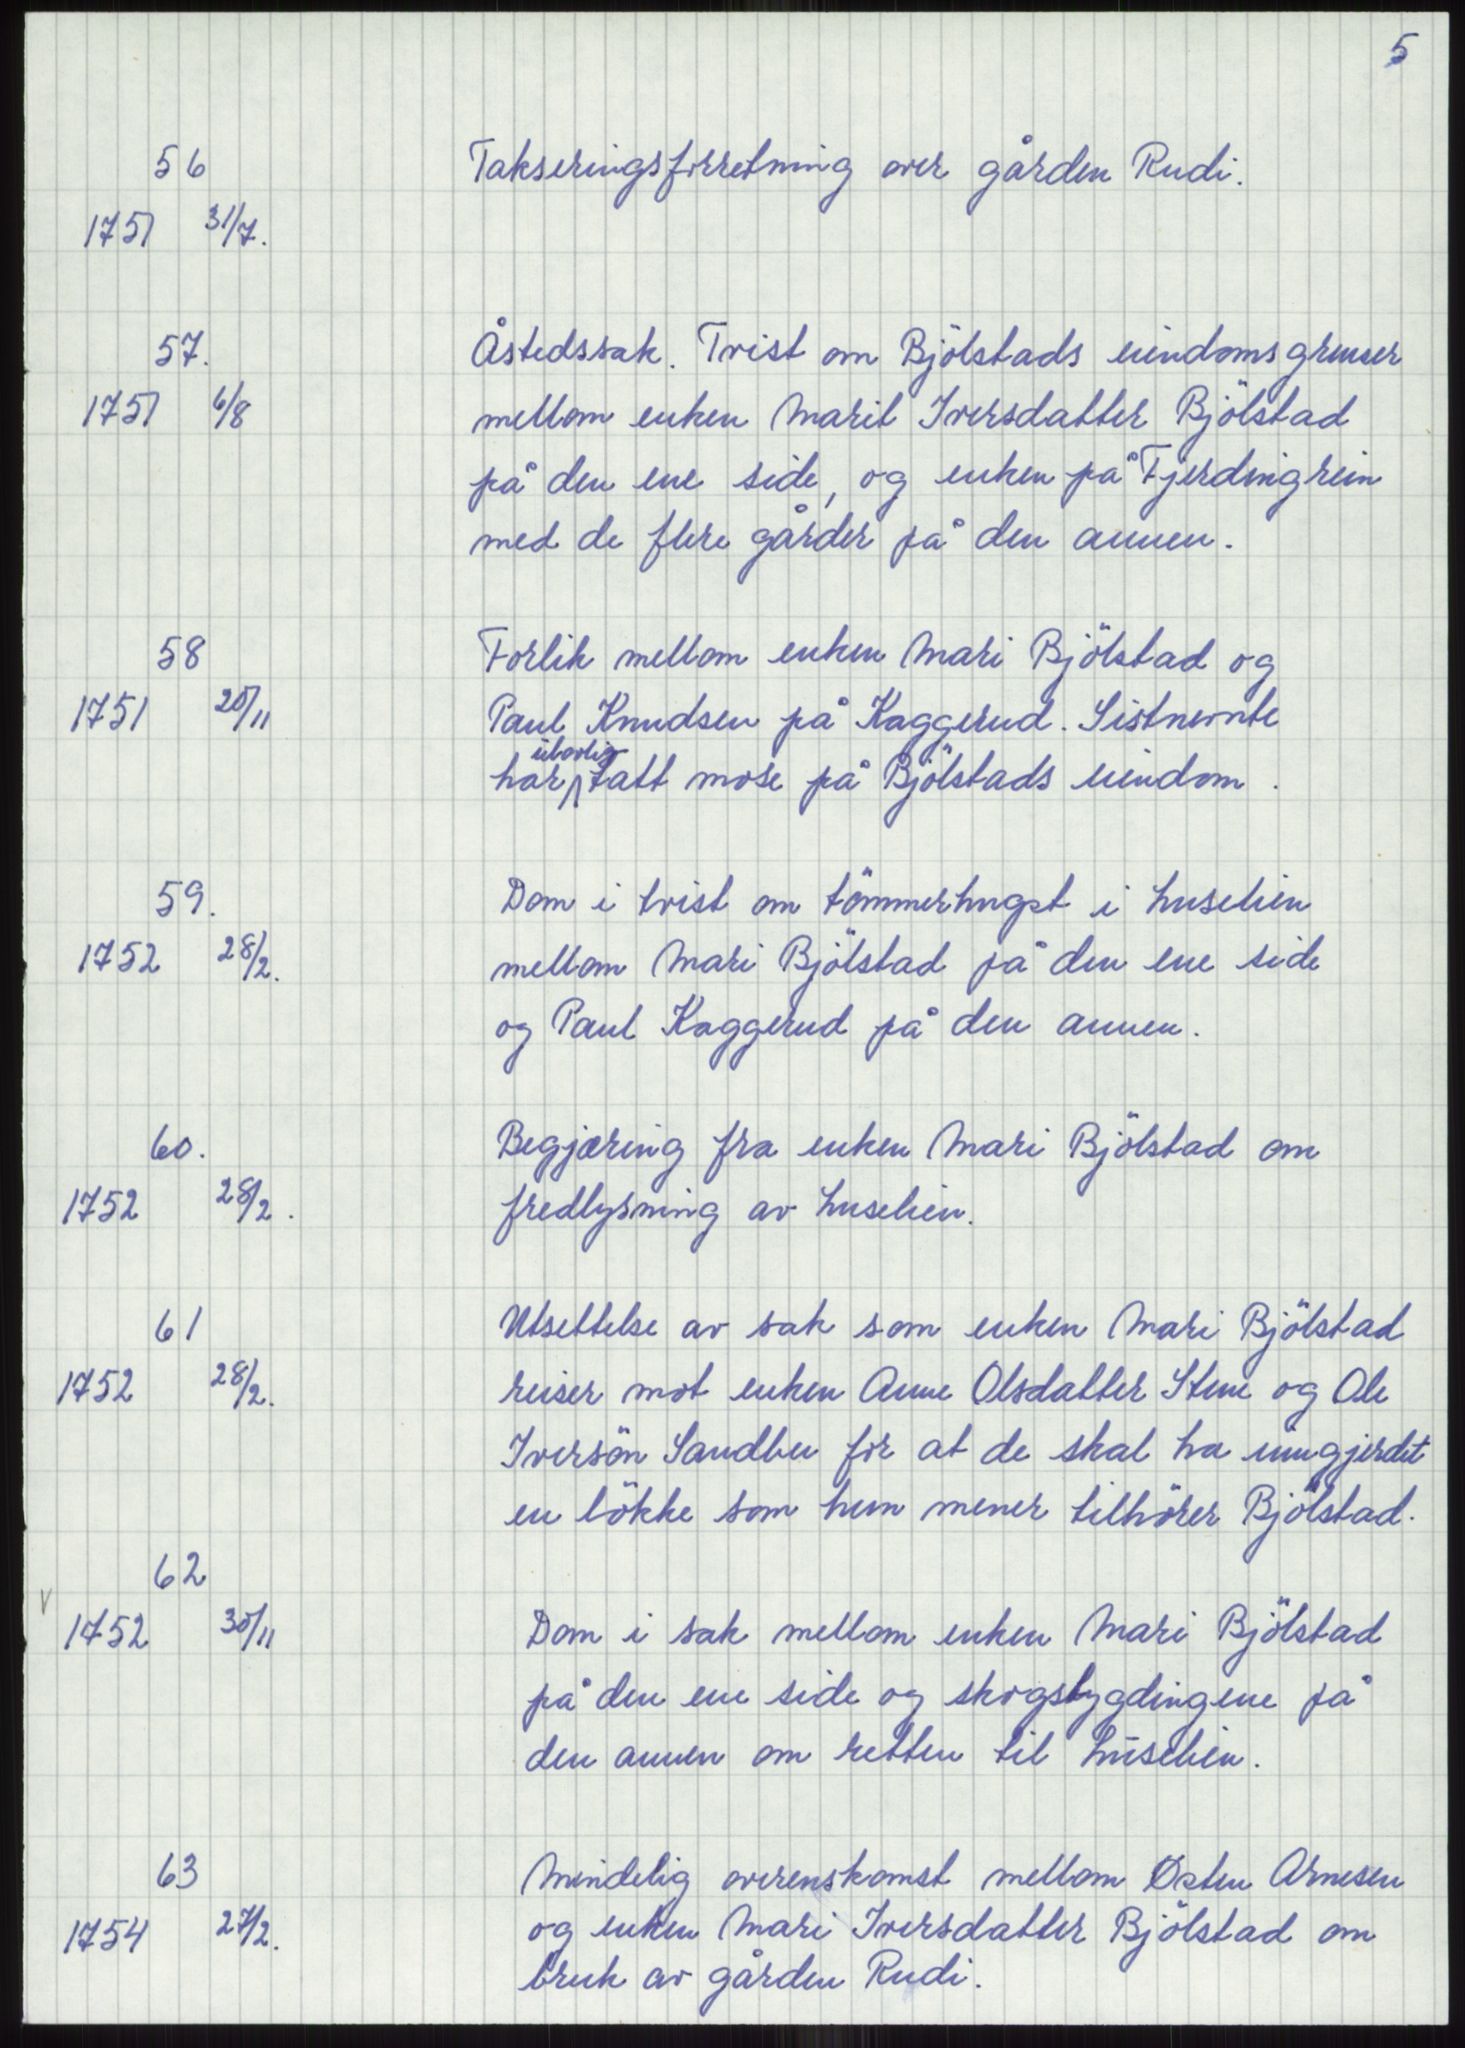 5
56 Takseringsforretning over gården Rudi.
1751 31/7.
57. Åstedssak. Trist om Bjölstads eiendomsgrenser
1751 6/8 mellom enken Marit Iversdatter Bjölstad
på den ene side, og enken på Fjerdingrein
med de flere gårder på den annen.
58 Forlik mellom enken Mari Bjölstad og
1751 20/11 Paul Knudsen på Kaggerud. Sistnevnte
har ulovlig tatt mose på Bjölstads eiendom.
59. Dom i trist om tömmerhugst i huselien
1752 28/2. mellom Mari Bjölstad på den ene side
og Paul Kaggerud på den annen.
60. Begjæring fra enken Mari Bjölstad om
1752 28/2. fredlysning av huselien.
61 Utsettelse av sak som enken Mari Bjölstad
1752 28/2. reiser mot enken Anne Olsdatter Stene og Ole
Iversön Sandbu for at de skal ha inngjerdet
en lökke som hun mener tilhörer Bjölstad.
62
V 1752 30/11 Dom i sak mellom enken Mari Bjölstad
på den ene side og skogsbygdingene på
den annen om retten til huselien.
63 Mindelig overenskomst mellom Østen Arnesen
1754 27/2. og enken Mari Iversdatter Bjölstad om
bruk av gården Rudi.